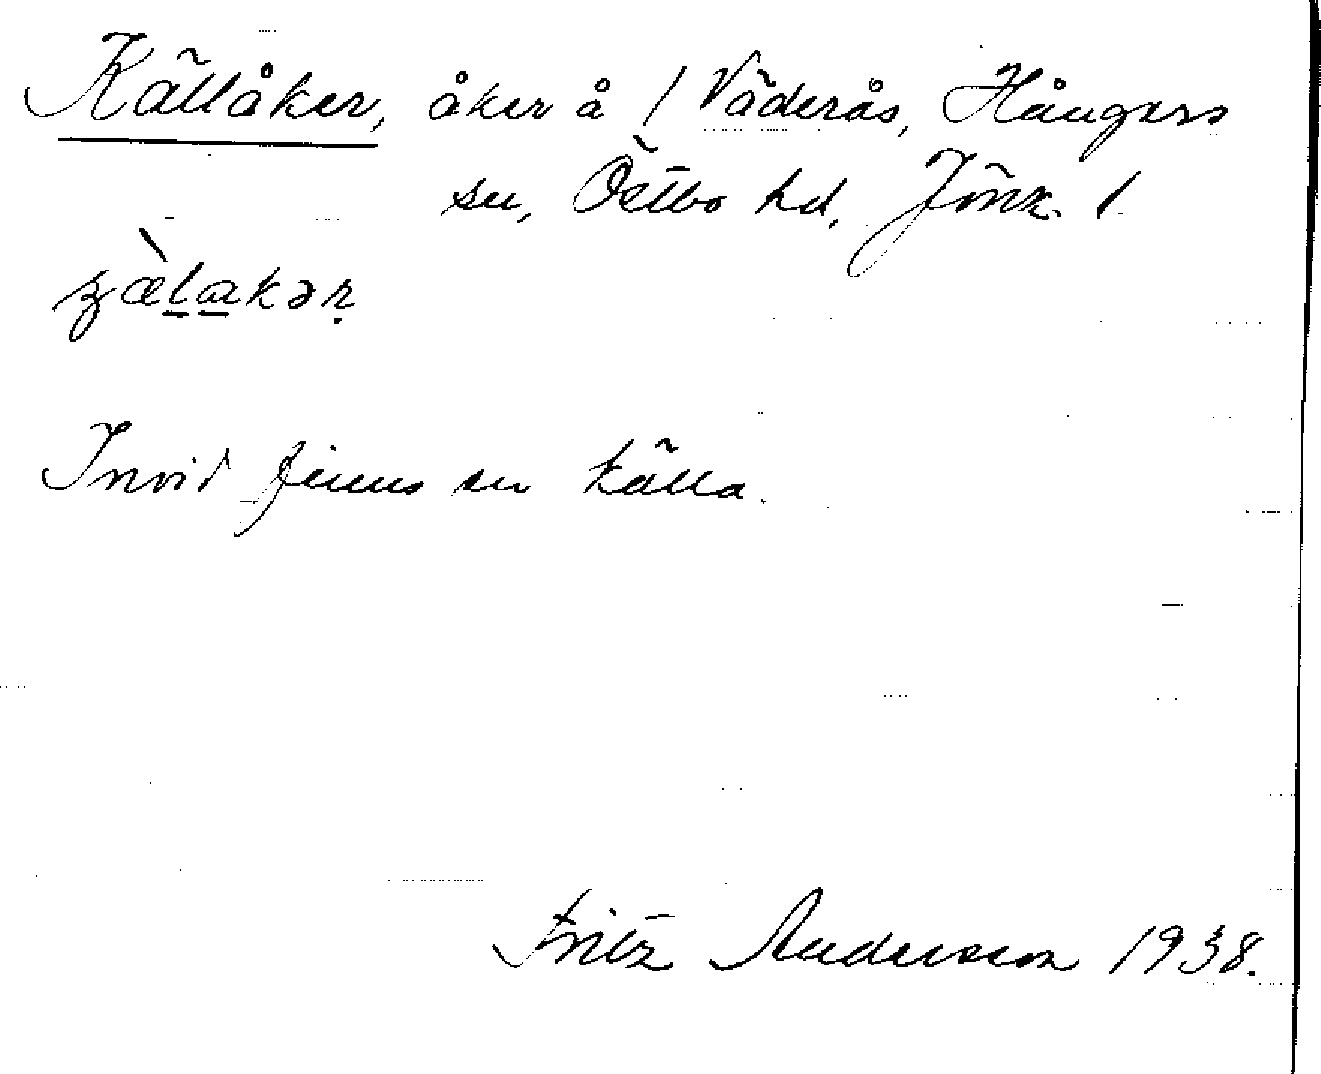 Källåker, åker å 1 Väderås, Hångers
sn, Östbo hd, Jönk. l.
Invid finns en källa.
Fritz Andersson 1938.